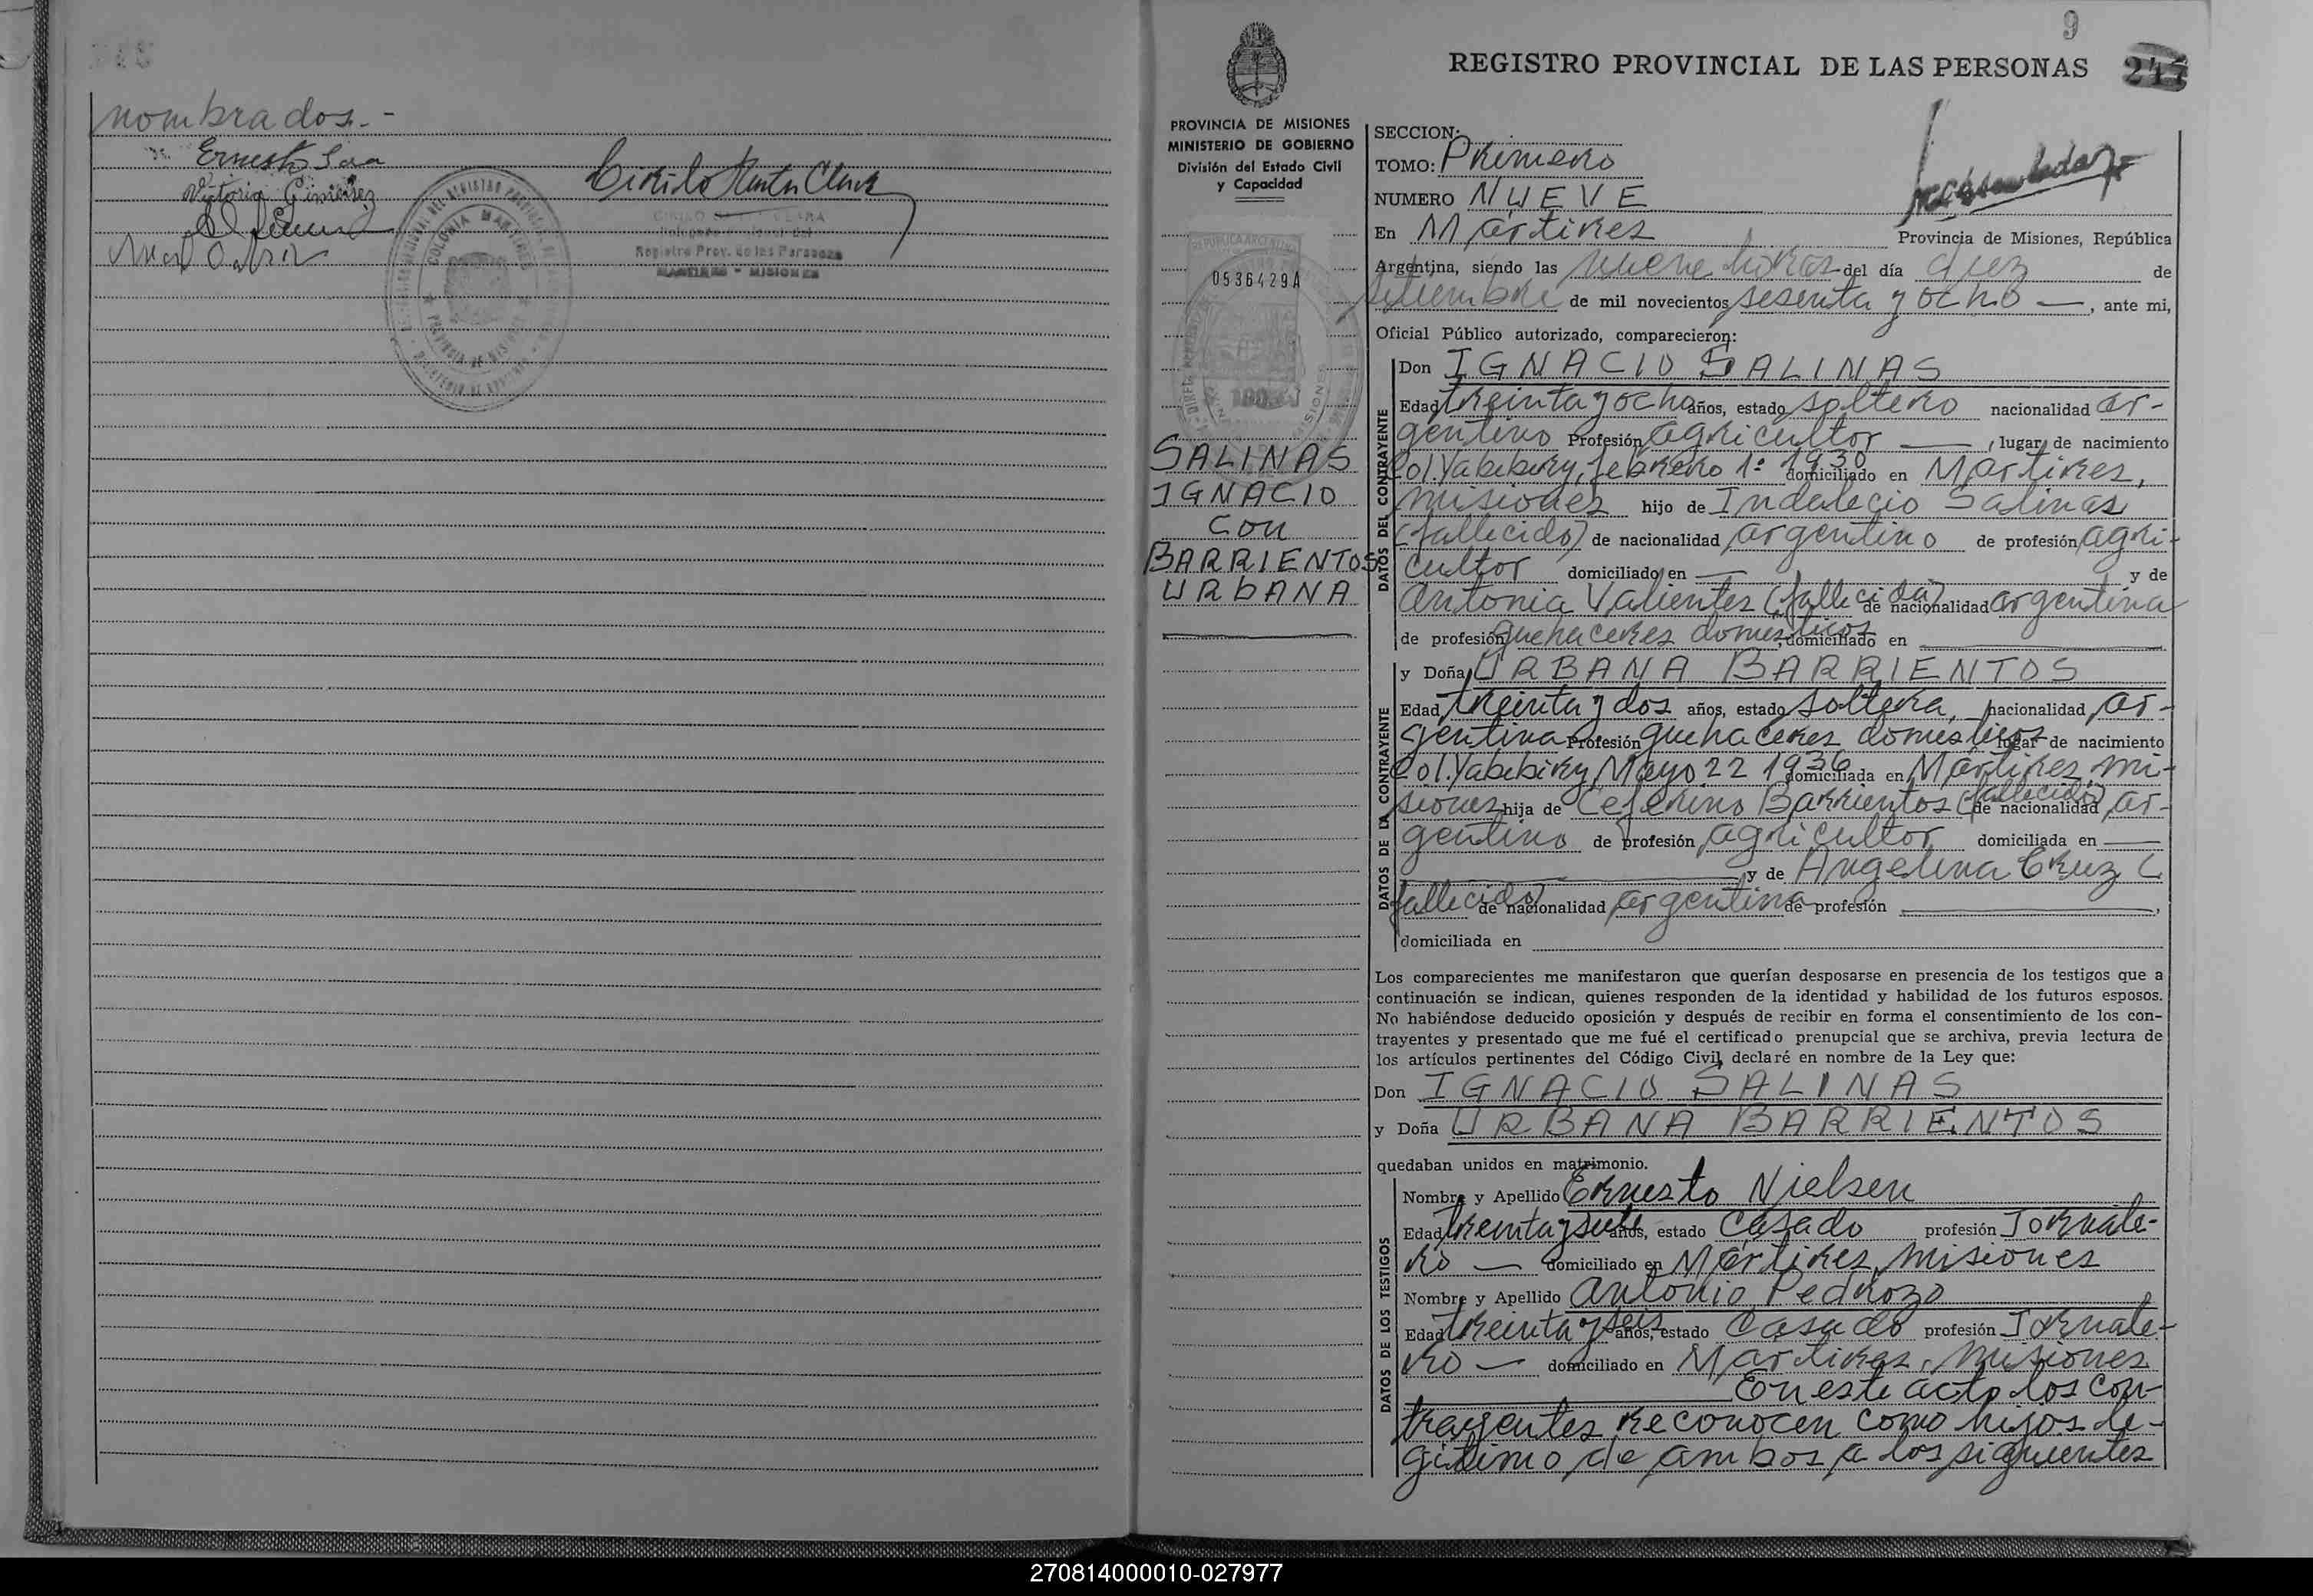 nombrados.-
Ernesto
Vitoria Gimenez
REGISTRO PROVINCIAL DE
COLONIA MARTIRES
PROVINCIA DE MISIONES
Cirilo Santa Clara
CIRILO CLARA
Registro Prov. de las Personas
MARTIRES - MISIONES
9
REGISTRO PROVINCIAL DE LAS PERSONAS
247
PROVINCIA DE MISIONES
MINISTERIO DE GOBIERNO
División del Estado Civil
y Capacidad
REPUBLICA ARGENTINA
0536429A
SALINAS
IGNACIO
con
BARRIENTOS
URbANA
SECCION:
TOMO: Primero
NUMERO NUEVE
En Mártires Provincia de Misiones, República
Argentina, siendo las nueve horas del día diez de
setiembre de mil novecientos sesenta y ocho —, ante mi,
Oficial Público autorizado, comparecieron:
DATOS DEL CONTRAYENTE
Don IGNACIO SALINAS
Edad treinta y ocho años, estado soltero nacionalidad ar-
gentino Profesión agricultor —, lugar de nacimiento
Col. Yabebiry, febrero 1º 1930 domiciliado en Martires,
misiones hijo de Indalecio Salinas
(fallecido) de nacionalidad argentino de profesión agri-
cultor domiciliado en — y de
Antonia Valientes (fallecida) de nacionalidad argentina
de profesión quehaceres domesticos, domiciliado en —
DATOS DE LA CONTRAYENTE
y Doña URBANA BARRIENTOS
Edad treinta y dos años, estado soltera, nacionalidad ar-
gentina Profesión quehaceres domesticos lugar de nacimiento
Col. Yabebiry, Mayo 22 1936 domiciliada en Mártires, mi-
siones hija de Ceferino Barrientos (fallecido) de nacionalidad ar-
gentino de profesión agricultor domiciliada en —
— y de Angelina Cruz (
fallecida) de nacionalidad argentina de profesión —,
domiciliada en
Los comparecientes me manifestaron que querían desposarse en presencia de los testigos que a
continuación se indican, quienes responden de la identidad y habilidad de los futuros esposos.
No habiéndose deducido oposición y después de recibir en forma el consentimiento de los con-
trayentes y presentado que me fué el certificado prenupcial que se archiva, previa lectura de
los artículos pertinentes del Código Civil, declaré en nombre de la Ley que:
Don IGNACIO SALINAS
y Doña URBANA BARRIENTOS
quedaban unidos en matrimonio.
DATOS DE LOS TESTIGOS
Nombre y Apellido Ernesto Nielsen
Edad treinta y siete años, estado Casado profesión Jornale-
ro — domiciliado en Mártires, misiones
Nombre y Apellido Antonio Pedrozo
Edad treinta y seis años, estado Casado profesión Jornale-
ro — domiciliado en Martires, misiones
En este acto los con-
trayentes reconocen como hijos le-
gitimo de ambos a los siguientes
270814000010-027977